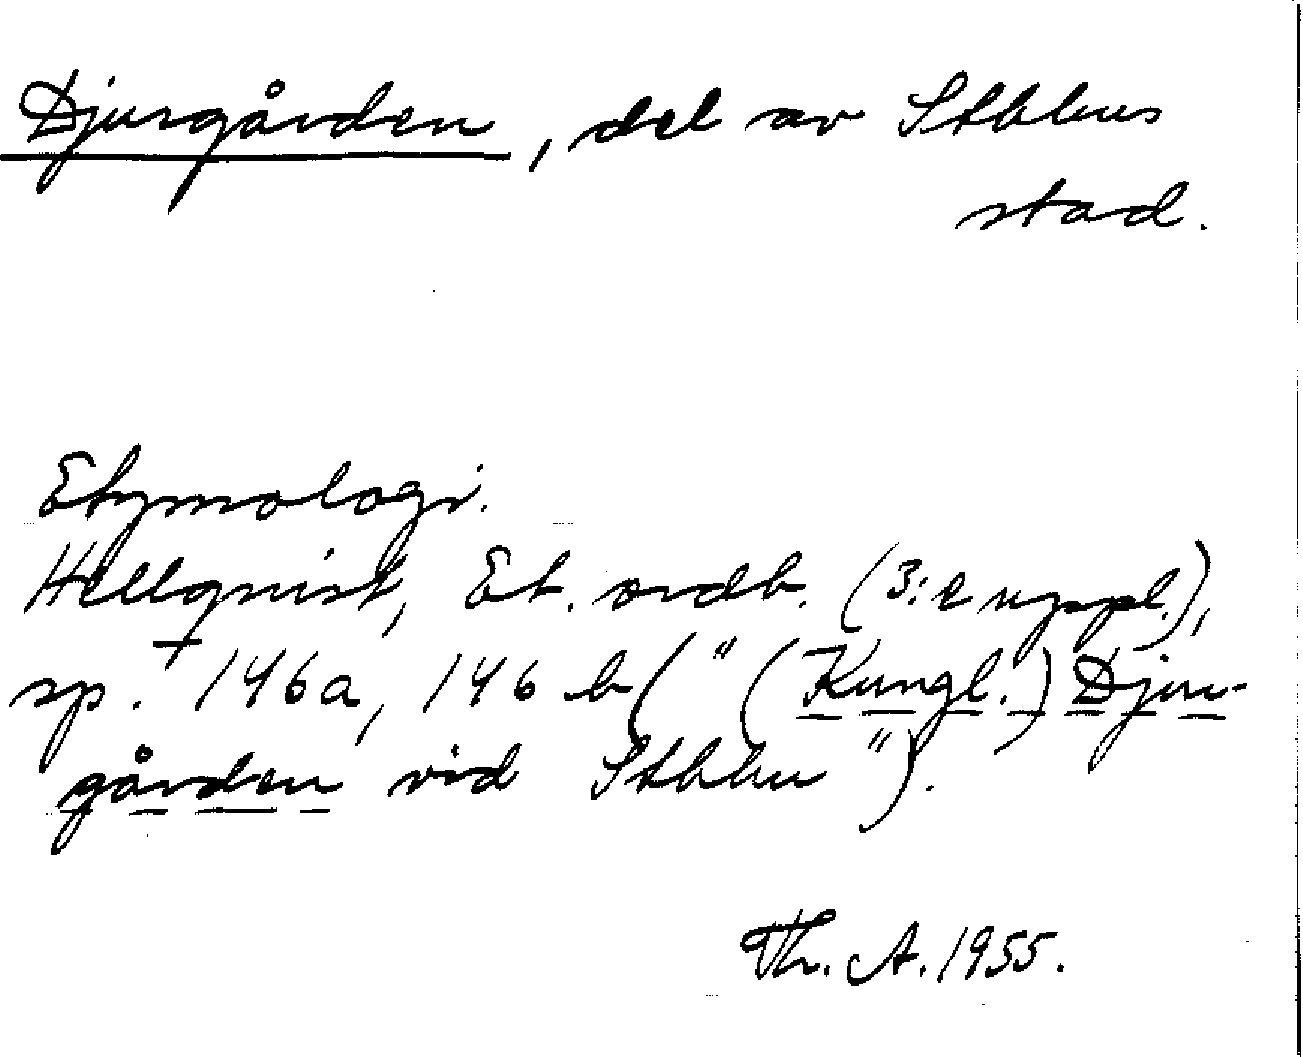 Djurgården, del av Sthlms
stad.
Etymologi.
Hellquist, Et. ordb. (3:e uppl.),
sp. 146a, 146 b (" (Kungl.) Djur-
gården vid Sthlm").
Th. A. 1955.